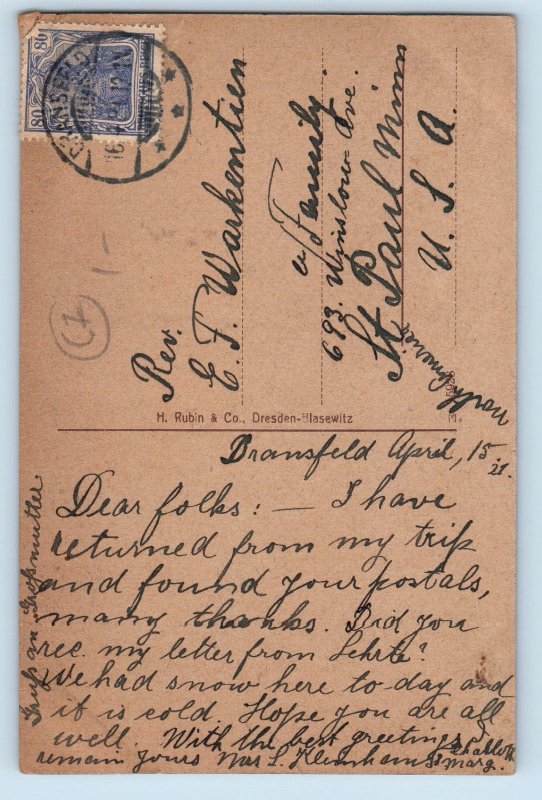 80
80
BRANSFELD
Rev.
C. F. Warkentien
u Family.
693. Winslow Ave.
St. Paul Minn
U. S. A.
Nord Amerika
H. Rubin & Co., Dresden-Blasewitz
Bransfeld April, 15/21.
Dear folks: — I have
returned from my trip
and found your postals,
many thanks. Did you
rec. my letter from Lehrte?
We had snow here to day and
it is cold. Hope you are all
well. With the best greetings I
remain yours Mrs L. Kleinhans
Marg.
Gruß an Großmutter